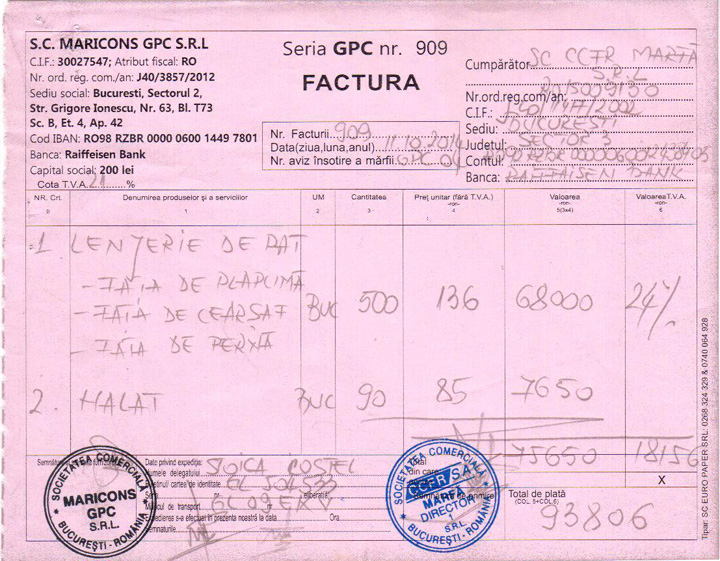 S.C. MARICONS GPC S.R.L
C.I.F.: 30027547; Atribut fiscal: RO
Nr. ord. reg. com./an: J40/3857/2012
Sediu social: Bucuresti, Sectorul 2,
Str. Grigore Ionescu, Nr. 63, Bl. T73
Sc. B, Et. 4, Ap. 42
Cod IBAN: RO98 RZBR 0000 0600 1449 7801
Banca: Raiffeisen Bank
Capital social: 200 lei
Cota T.V.A. %
Seria GPC nr. 909
FACTURA
Nr. Facturii 909
Data(ziua,luna,anul) 11.10.2014
Nr. aviz însotire a mărfii GPC 04
Cumpărător: SC CCFR MARFĂ
S.R.L
Nr.ord.reg.com/an:
C.I.F.:
Sediu: BUCURESTI
Judetul: SECTOR 3
Contul:
Banca: RAFFAISEN BANK
NR. Crt. Denumirea produselor şi a serviciilor UM Cantitatea Preţ unitar (fără T.V.A.) -ron- Valoarea -ron- Valoarea T.V.A. -ron-
0 1 2 3 4 5(3x4) 6
1 LENJERIE DE PAT
- FAIA DE PLAPUMĂ
- FAIA DE CEARSAF BUC 500 136 68000 24%
- FAIA DE PERNĂ
2. HALAT BUC 90 85 7650
75650 18156
X
Total de plată
(COL. 5+COL.6)
93806
Date privind expediţia:
Numele delegatului STOICA COSTEL
cartea de identitate
eliberată
de transport
efectuat în prezenta noastră la data Ora
SOCIETATEA COMERCIALĂ
MARICONS
GPC
S.R.L.
BUCUREŞTI - ROMÂNIA
SOCIETATEA COMERCIALĂ
CCFR SAT
MARFA
DIRECTOR
1
S.R.L.
BUCUREŞTI - ROMÂNIA
Tipar: SC EURO PAPER SRL: 0268 324 329 & 0740 064 928